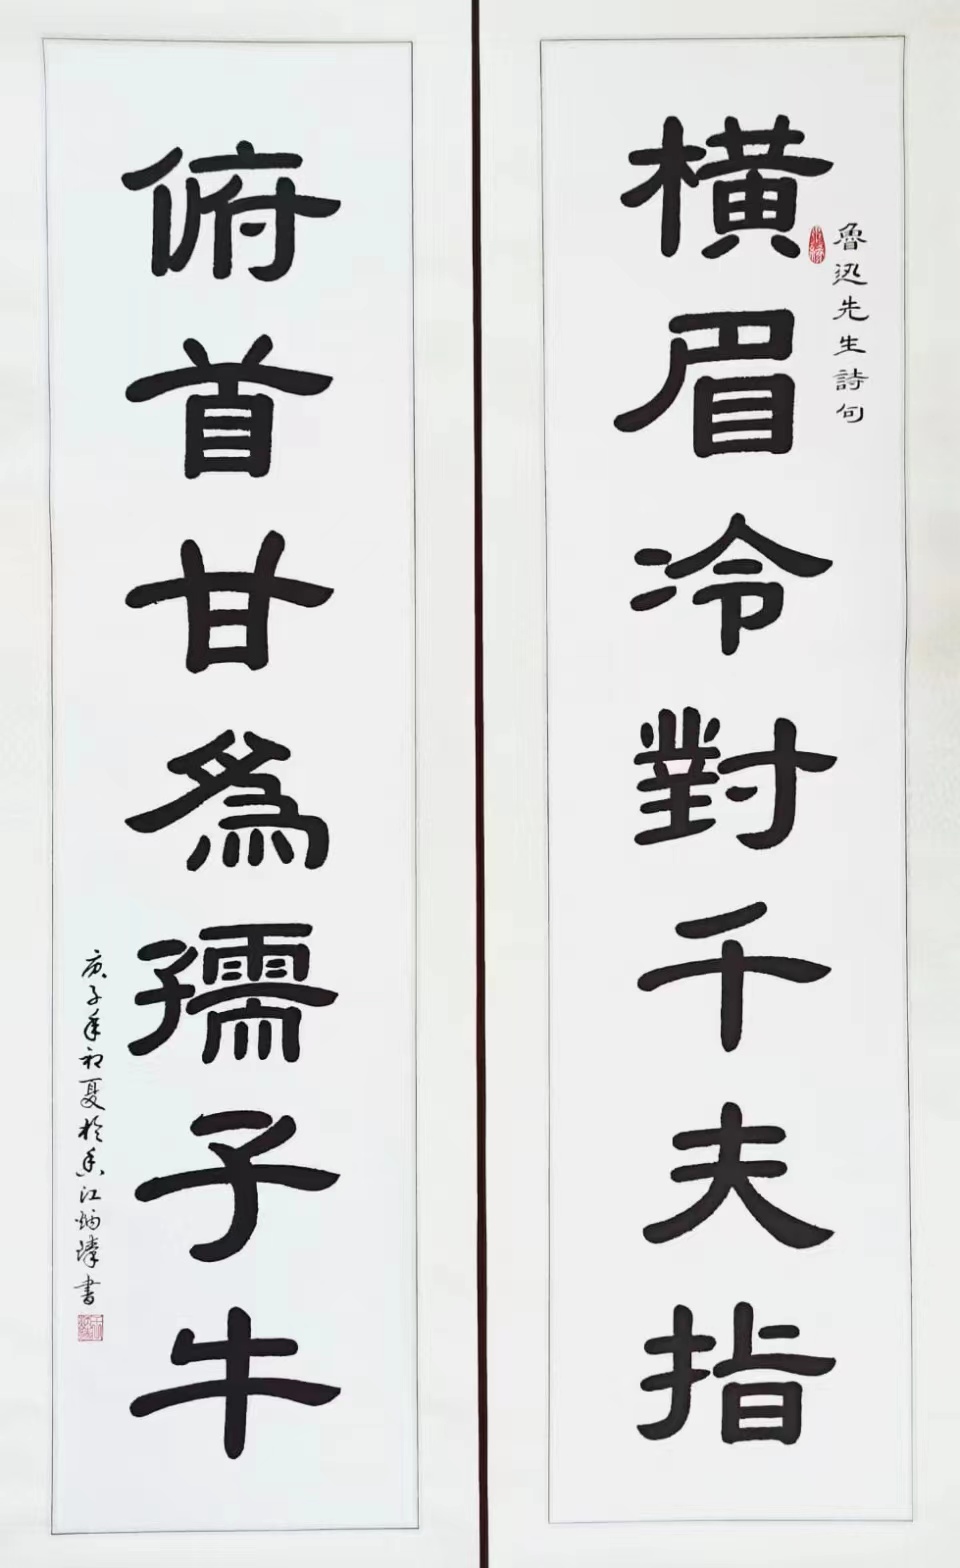 魯迅先生詩句
橫眉冷對千夫指
俯首甘為孺子牛
庚子年初夏於香江炳璋書